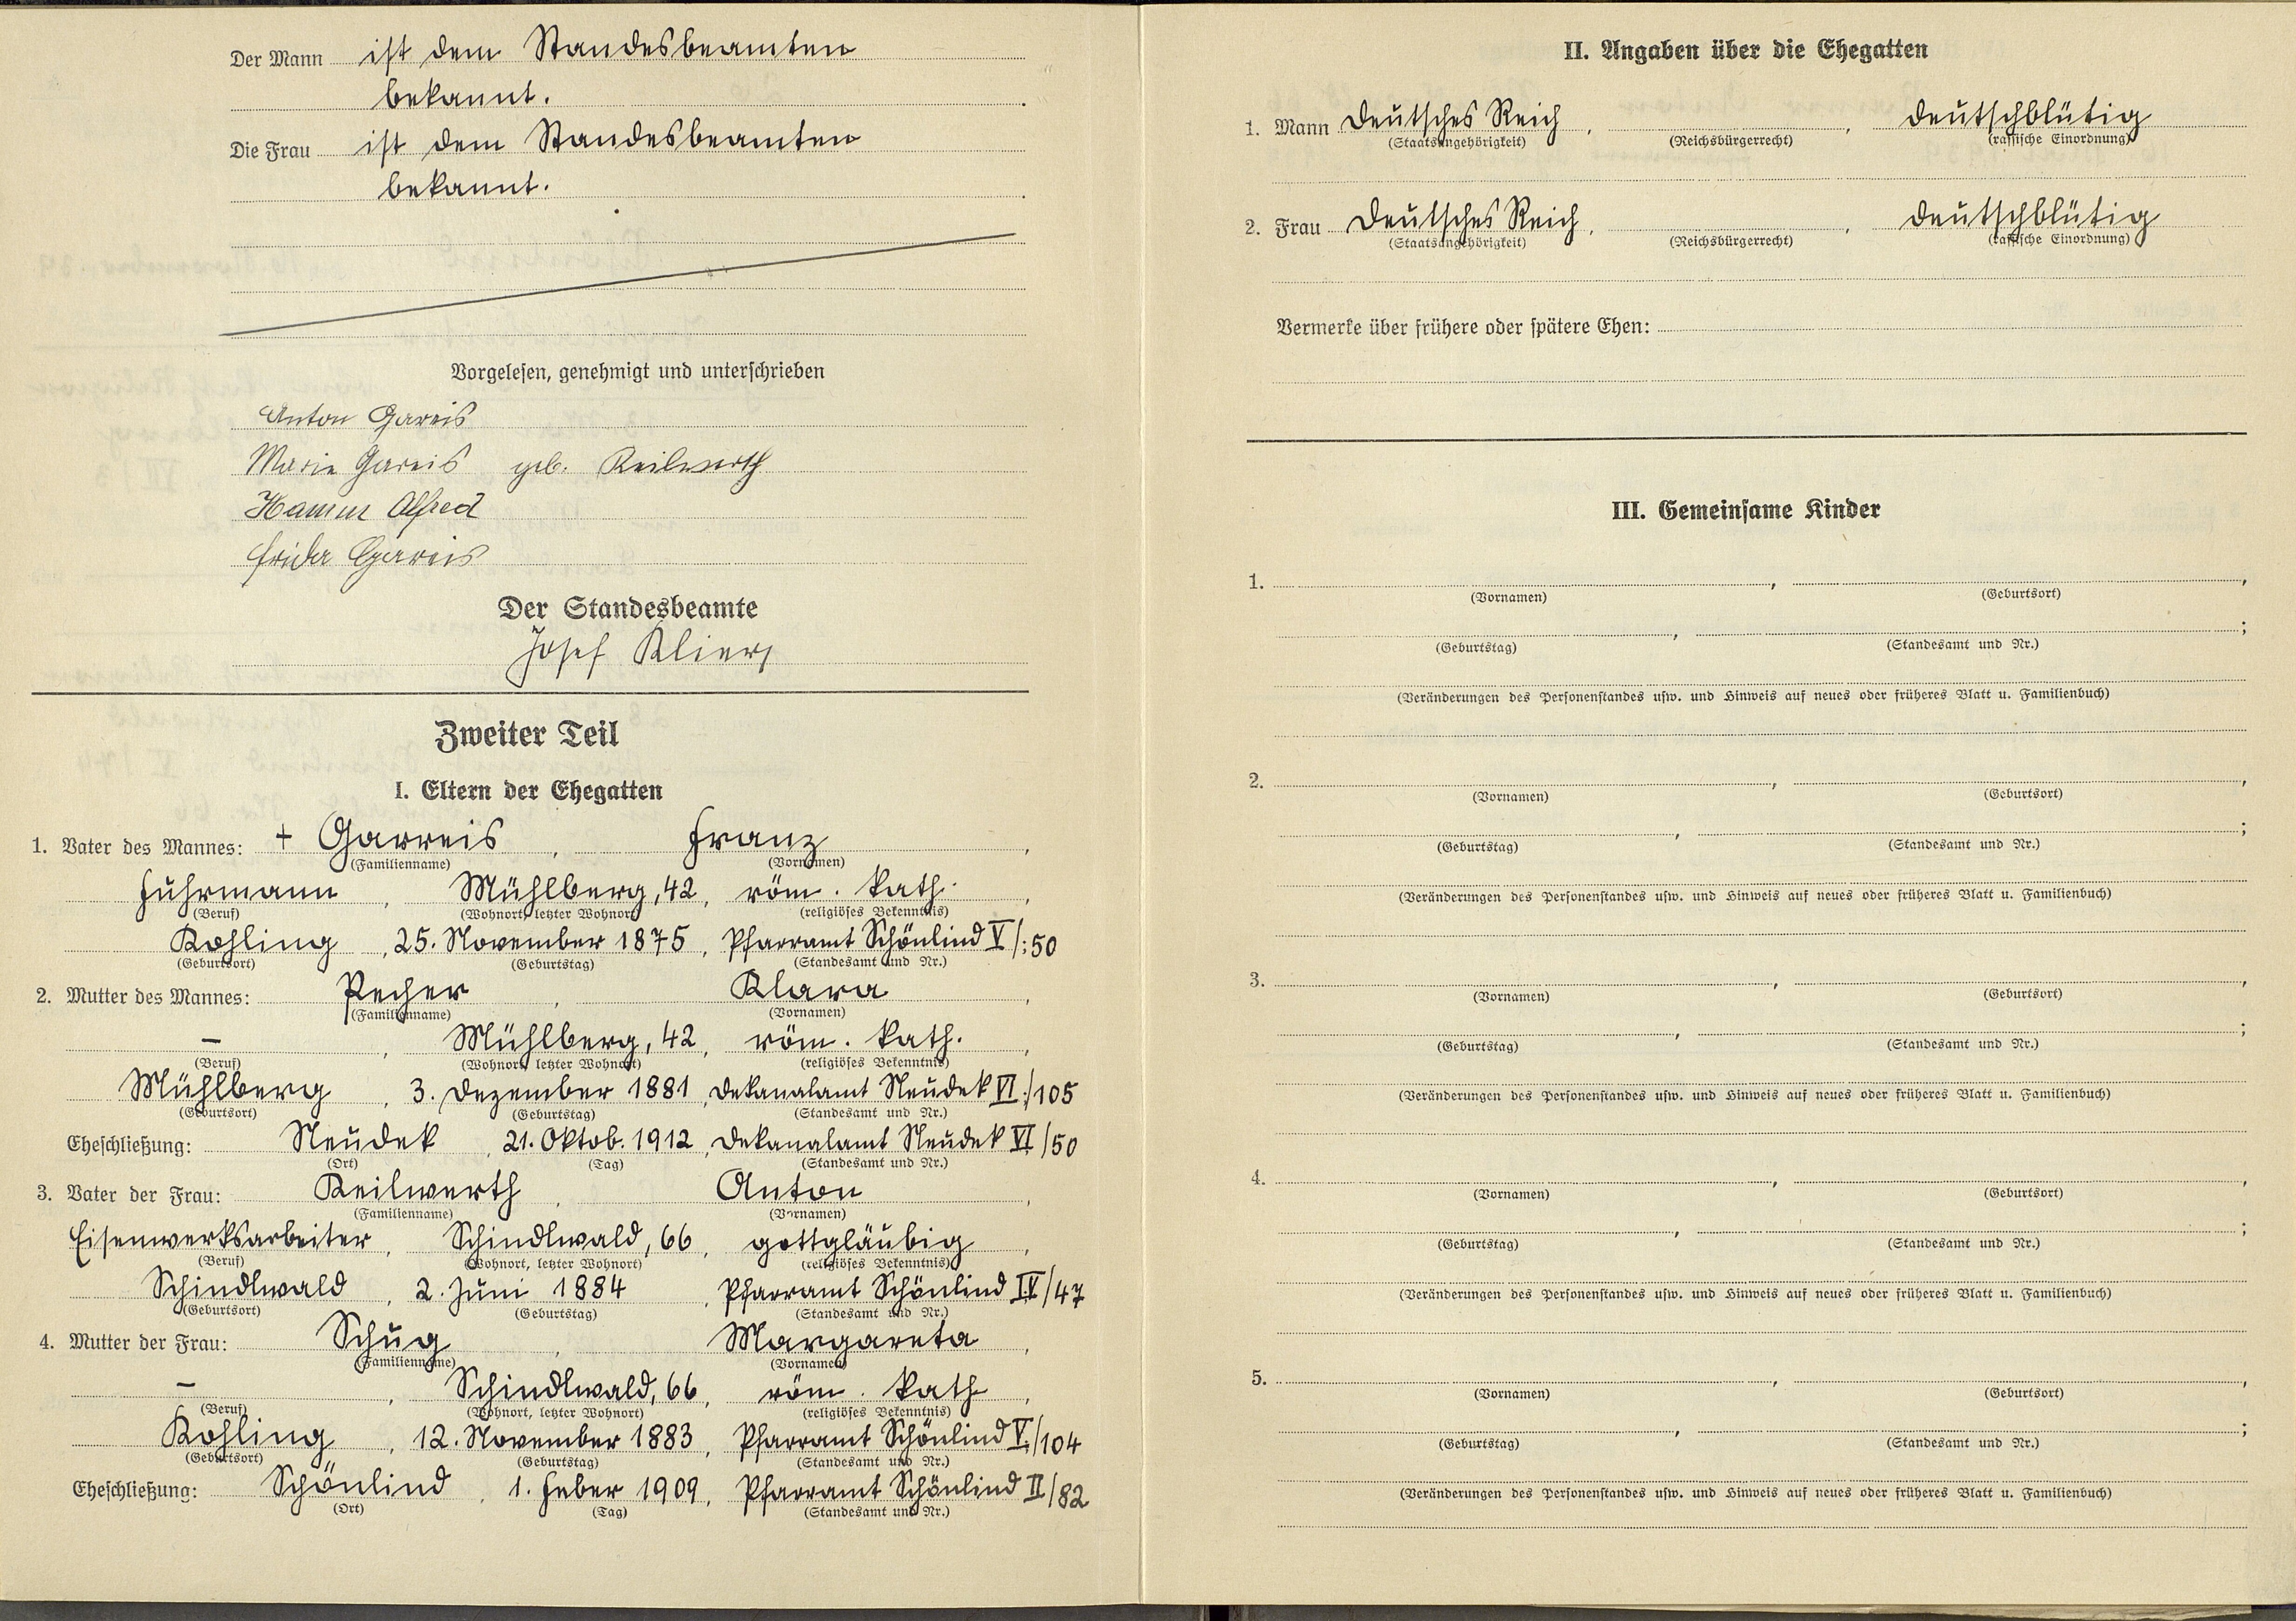 Der Mann ist dem Standesbeamten
bekannt.
Die Frau ist dem Standesbeamten
bekannt.
Vorgelesen, genehmigt und unterschrieben
Anton Gareis
Marie Gareis geb. Keilwerth
Hamm Alfred
Frida Gareis
Der Standesbeamte
Josef Klier
Zweiter Teil
I. Eltern der Ehegatten
1. Vater des Mannes: + Garreis, Franz,
(Familienname) (Vornamen)
Fuhrmann, Mühlberg, 42, röm. kath.,
(Beruf) (Wohnort, letzter Wohnort) (religiöses Bekenntnis)
Kohling, 25. November 1875, Pfarramt Schönlind V/:50
(Geburtsort) (Geburtstag) (Standesamt und Nr.)
2. Mutter des Mannes: Pecher, Klara,
(Familienname) (Vornamen)
–, Mühlberg, 42, röm. kath.,
(Beruf) (Wohnort, letzter Wohnort) (religiöses Bekenntnis)
Mühlberg, 3. Dezember 1881, Dekanalamt Neudek VI:/105
(Geburtsort) (Geburtstag) (Standesamt und Nr.)
Eheschließung: Neudek, 21. Oktob. 1912, Dekanalamt Neudek VI/50
(Ort) (Tag) (Standesamt und Nr.)
3. Vater der Frau: Keilwerth, Anton,
(Familienname) (Vornamen)
Eisenwerksarbeiter, Schindlwald, 66, gottgläubig,
(Beruf) (Wohnort, letzter Wohnort) (religiöses Bekenntnis)
Schindlwald, 2. Juni 1884, Pfarramt Schönlind IV/47
(Geburtsort) (Geburtstag) (Standesamt und Nr.)
4. Mutter der Frau: Schug, Margareta,
(Familienname) (Vornamen)
–, Schindlwald, 66, röm. kath,
(Beruf) (Wohnort, letzter Wohnort) (religiöses Bekenntnis)
Kohling, 12. November 1883, Pfarramt Schönlind V./104
(Geburtsort) (Geburtstag) (Standesamt und Nr.)
Eheschließung: Schönlind, 1. Feber 1909, Pfarramt Schönlind II/82
(Ort) (Tag) (Standesamt und Nr.)
II. Angaben über die Ehegatten
1. Mann Deutsches Reich, , deutschblütig
(Staatsangehörigkeit) (Reichsbürgerrecht) (rassische Einordnung)
2. Frau Deutsches Reich, , deutschblütig
(Staatsangehörigkeit) (Reichsbürgerrecht) (rassische Einordnung)
Vermerke über frühere oder spätere Ehen:
III. Gemeinsame Kinder
1. , ,
(Vornamen) (Geburtsort)
, ;
(Geburtstag) (Standesamt und Nr.)
(Veränderungen des Personenstandes usw. und Hinweis auf neues oder früheres Blatt u. Familienbuch)
2. , ,
(Vornamen) (Geburtsort)
, ;
(Geburtstag) (Standesamt und Nr.)
(Veränderungen des Personenstandes usw. und Hinweis auf neues oder früheres Blatt u. Familienbuch)
3. , ,
(Vornamen) (Geburtsort)
, ;
(Geburtstag) (Standesamt und Nr.)
(Veränderungen des Personenstandes usw. und Hinweis auf neues oder früheres Blatt u. Familienbuch)
4. , ,
(Vornamen) (Geburtsort)
, ;
(Geburtstag) (Standesamt und Nr.)
(Veränderungen des Personenstandes usw. und Hinweis auf neues oder früheres Blatt u. Familienbuch)
5. , ,
(Vornamen) (Geburtsort)
, ;
(Geburtstag) (Standesamt und Nr.)
(Veränderungen des Personenstandes usw. und Hinweis auf neues oder früheres Blatt u. Familienbuch)